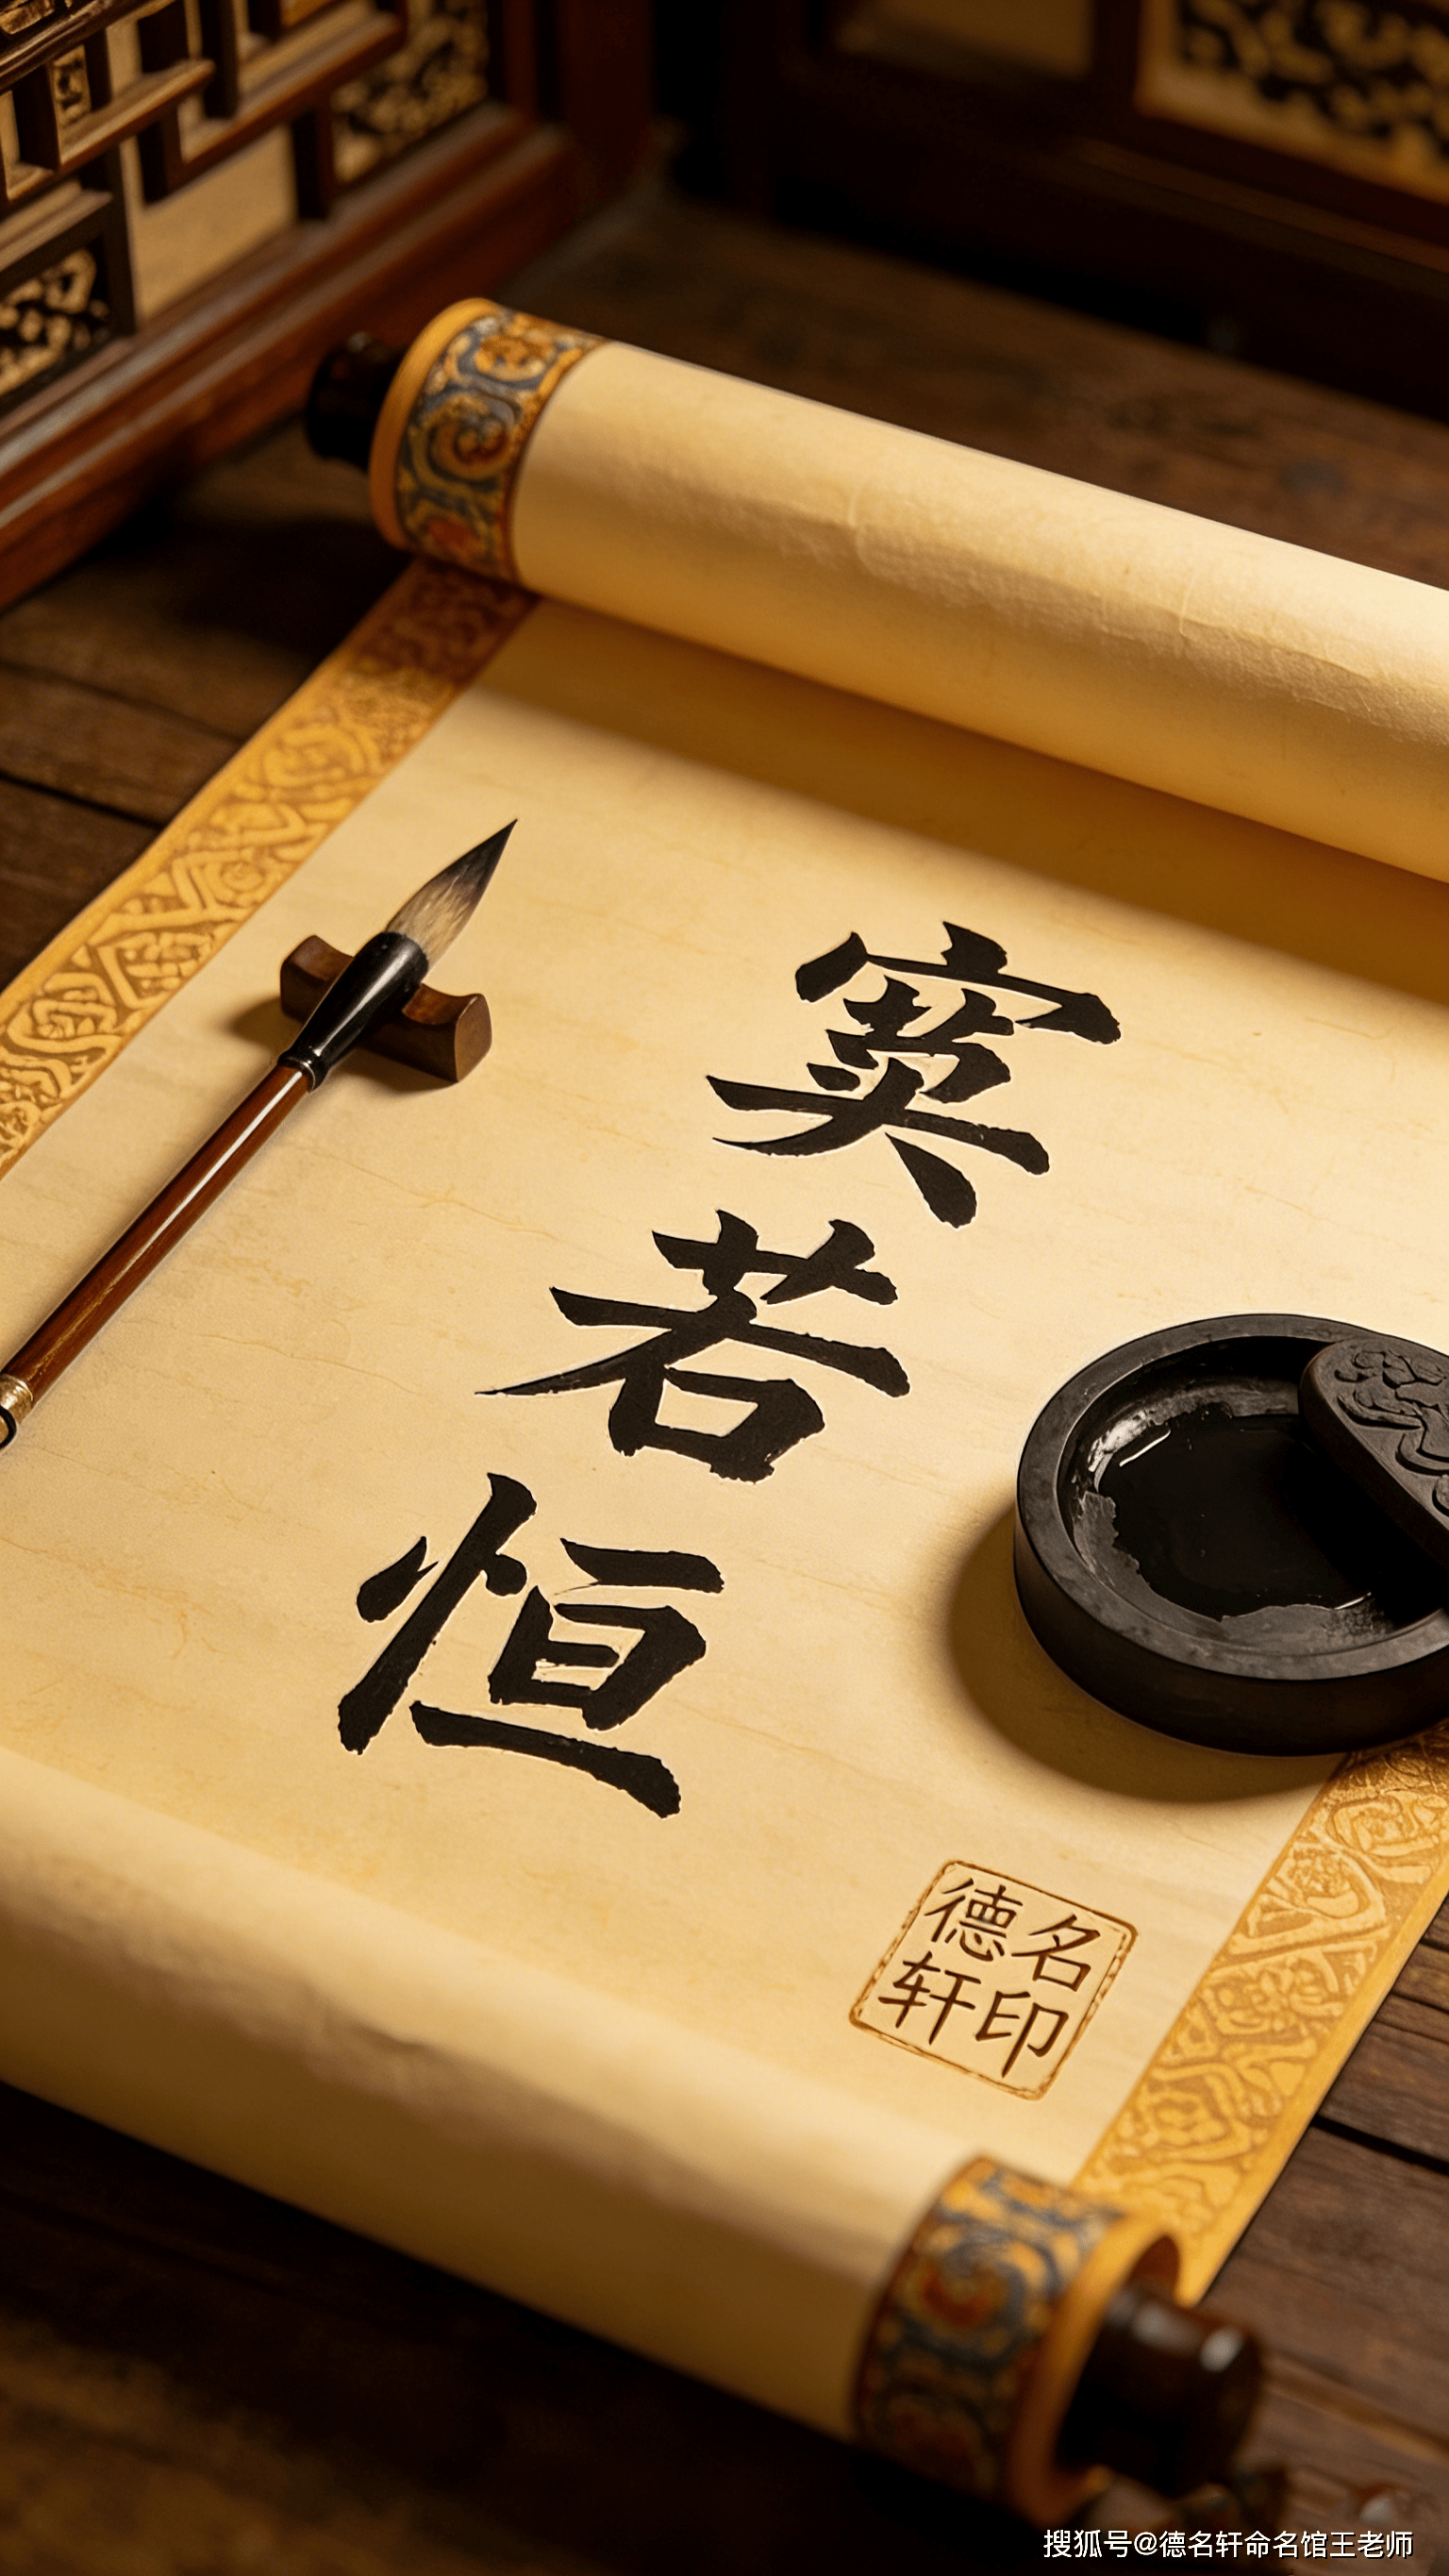 若
恒
德名
轩印
搜狐号@德名轩命名馆王老师